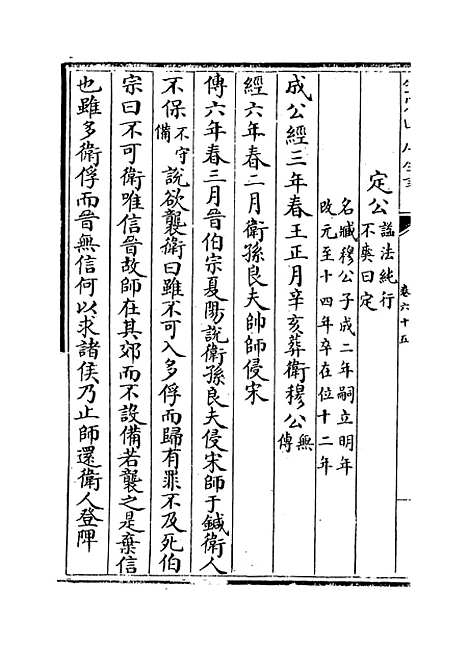 卷六十五
定公諡法純行不爽曰定
名臧穆公子成二年嗣立明年
改元至十四年卒在位十二年
成公經三年春王正月辛亥葬衛穆公無傳
經六年春二月衛孫良夫帥師侵宋
傳六年春三月晉伯宗夏陽說衛孫良夫侵宋師于鍼衛人
不保不守備說欲襲衛曰雖不可入多俘而歸有罪不及死伯
宗曰不可衛唯信晉故師在其郊而不設備若襲之是棄信
也雖多衛俘而晉無信何以求諸侯乃止師還衛人登陴